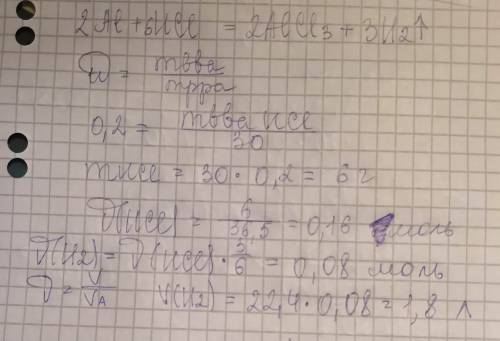 2Al + 6HCl = 2AlCl3 + 3H2↑
W = mвва / mрра
0,2 = mвва HCl / 30
mHCl = 30 · 0,2 = 6 г
ν(HCl) = 6 / 36,5 = 0,16 моль
ν(H2) = ν(HCl) · 3/6 = 0,08 моль
ν = V / VA V(H2) = 22,4 · 0,08 = 1,8 л